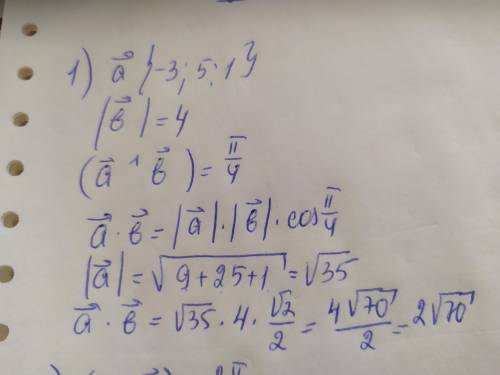 1) a⃗ {-3; 5; 1}
|b⃗| = 4
(a⃗ ^ b⃗) = π/4
a⃗ · b⃗ = |a⃗| · |b⃗| · cos π/4
|a⃗| = √(9+25+1) = √35
a⃗ · b⃗ = √35 · 4 · √2/2 = 4√70/2 = 2√70